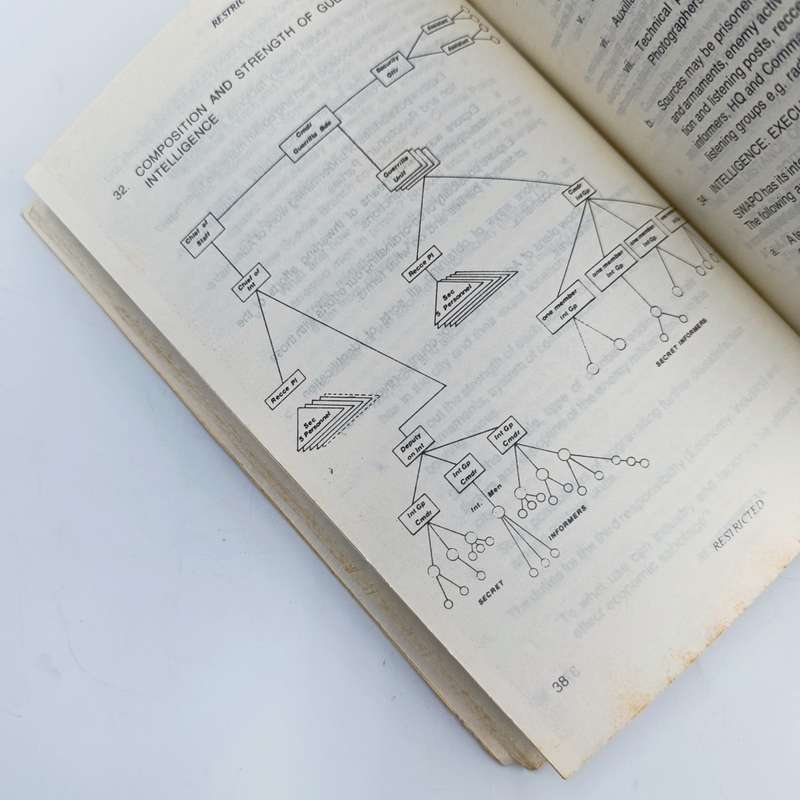 RESTRIC
32. COMPOSITION AND STRENGTH OF GU
INTELLIGENCE
Assistant
Assistant
Security
Offr
Cmdr
Guerrilla Bde
Guerrilla
Unit
Cmdr
Int Gp
Chief of
Staff
Chief of
Int
Recce Pl
Sec
5 Personnel
one member
Int Gp
one member
Int Gp
one member
Int Gp
SECRET INFORMERS
Recce Pl
Sec
5 Personnel
Deputy
on Int
Int Gp
Cmdr
Int Gp
Cmdr
Int Gp
Cmdr
Int. Men
SECRET INFORMERS
RESTRICTED
38
v.
vi. Auxilia
vii. Technical
Photographers
b. Sources may be prisoner
and armaments, enemy activ
tion and listening posts, recce
informers, HQ and Comm
listening groups e.g. rad
34 INTELLIGENCE: EXECU
SWAPO has its int
The following a
a.